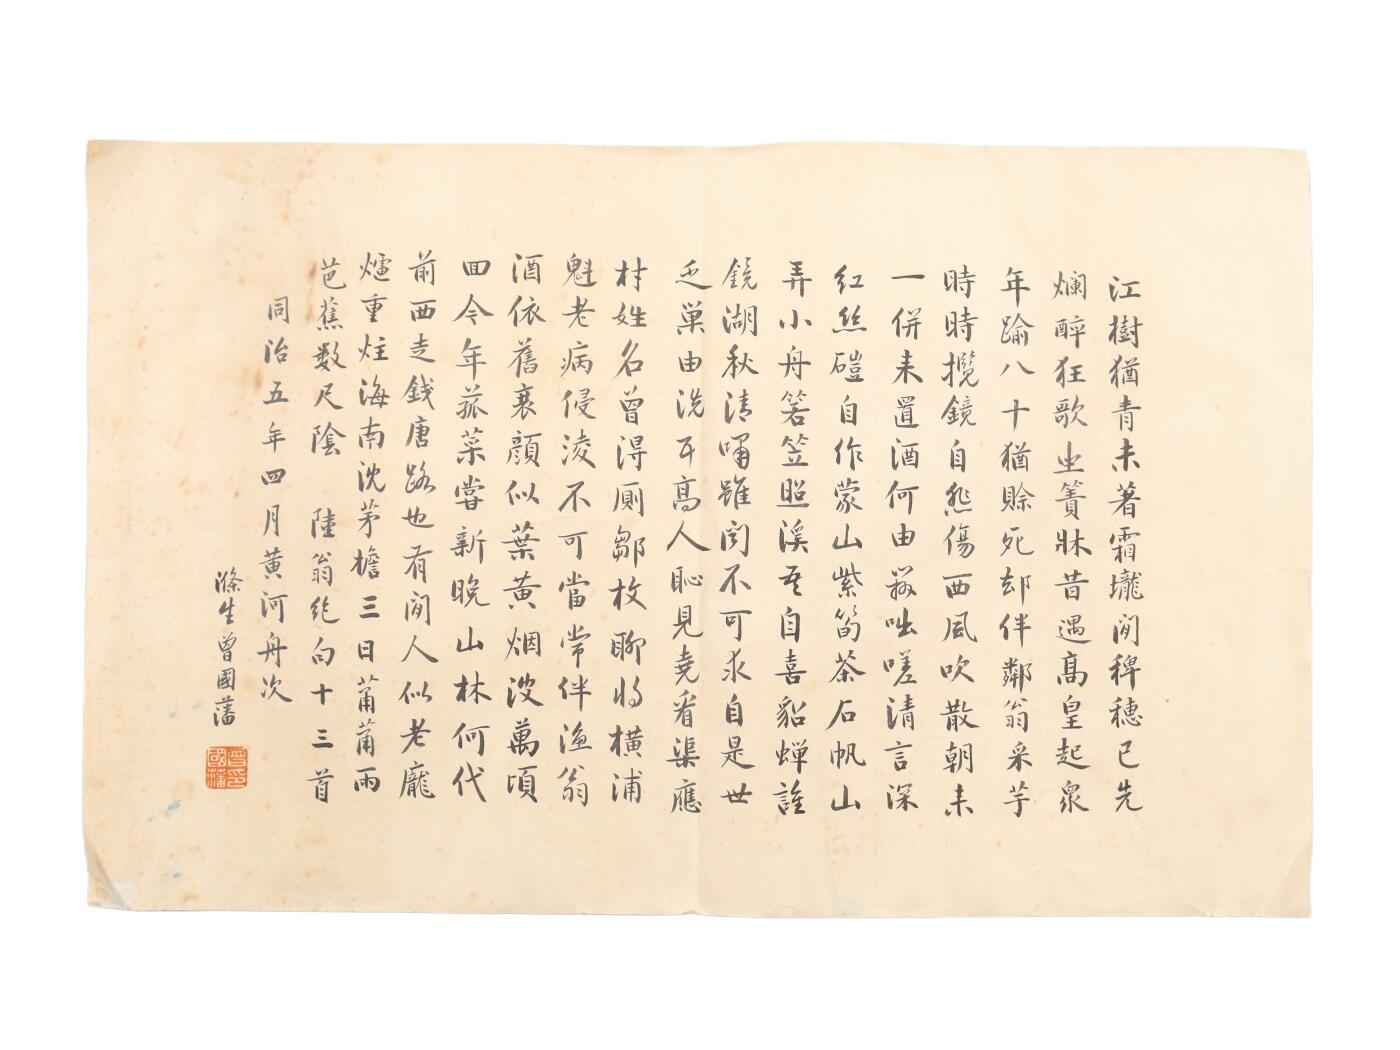 江樹猶青未著霜壠間稗穗已先
斕醉狂歌坐簀牀昔遇高皇起泉
年踰八十猶賒死却伴鄰翁采芋
時時攬鏡自悲傷西風吹散朝來
一併來置酒何由發咄嗟清言深
紅絲磑自作蒙山紫筍茶石帆山
弄小舟箬笠照溪吾自喜貂蟬誰
鏡湖秋清嘯雖聞不可求自是世
乏巢由洗耳高人恥見堯看渠應
村姓名曾得廁鄒枚聊將橫浦
魁老病侵淩不可當常伴漁翁
酒依舊衰顏似葉黃烟波萬頃
回今年菰菜嘗新晚山林何代
前西走錢唐路也有閒人似老龐
爐重炷海南沈茅檐三日蕭蕭雨
芭蕉数尺陰 陸翁絶句十三首
同治五年四月黃河舟次
滌生曾國藩
曾國藩印